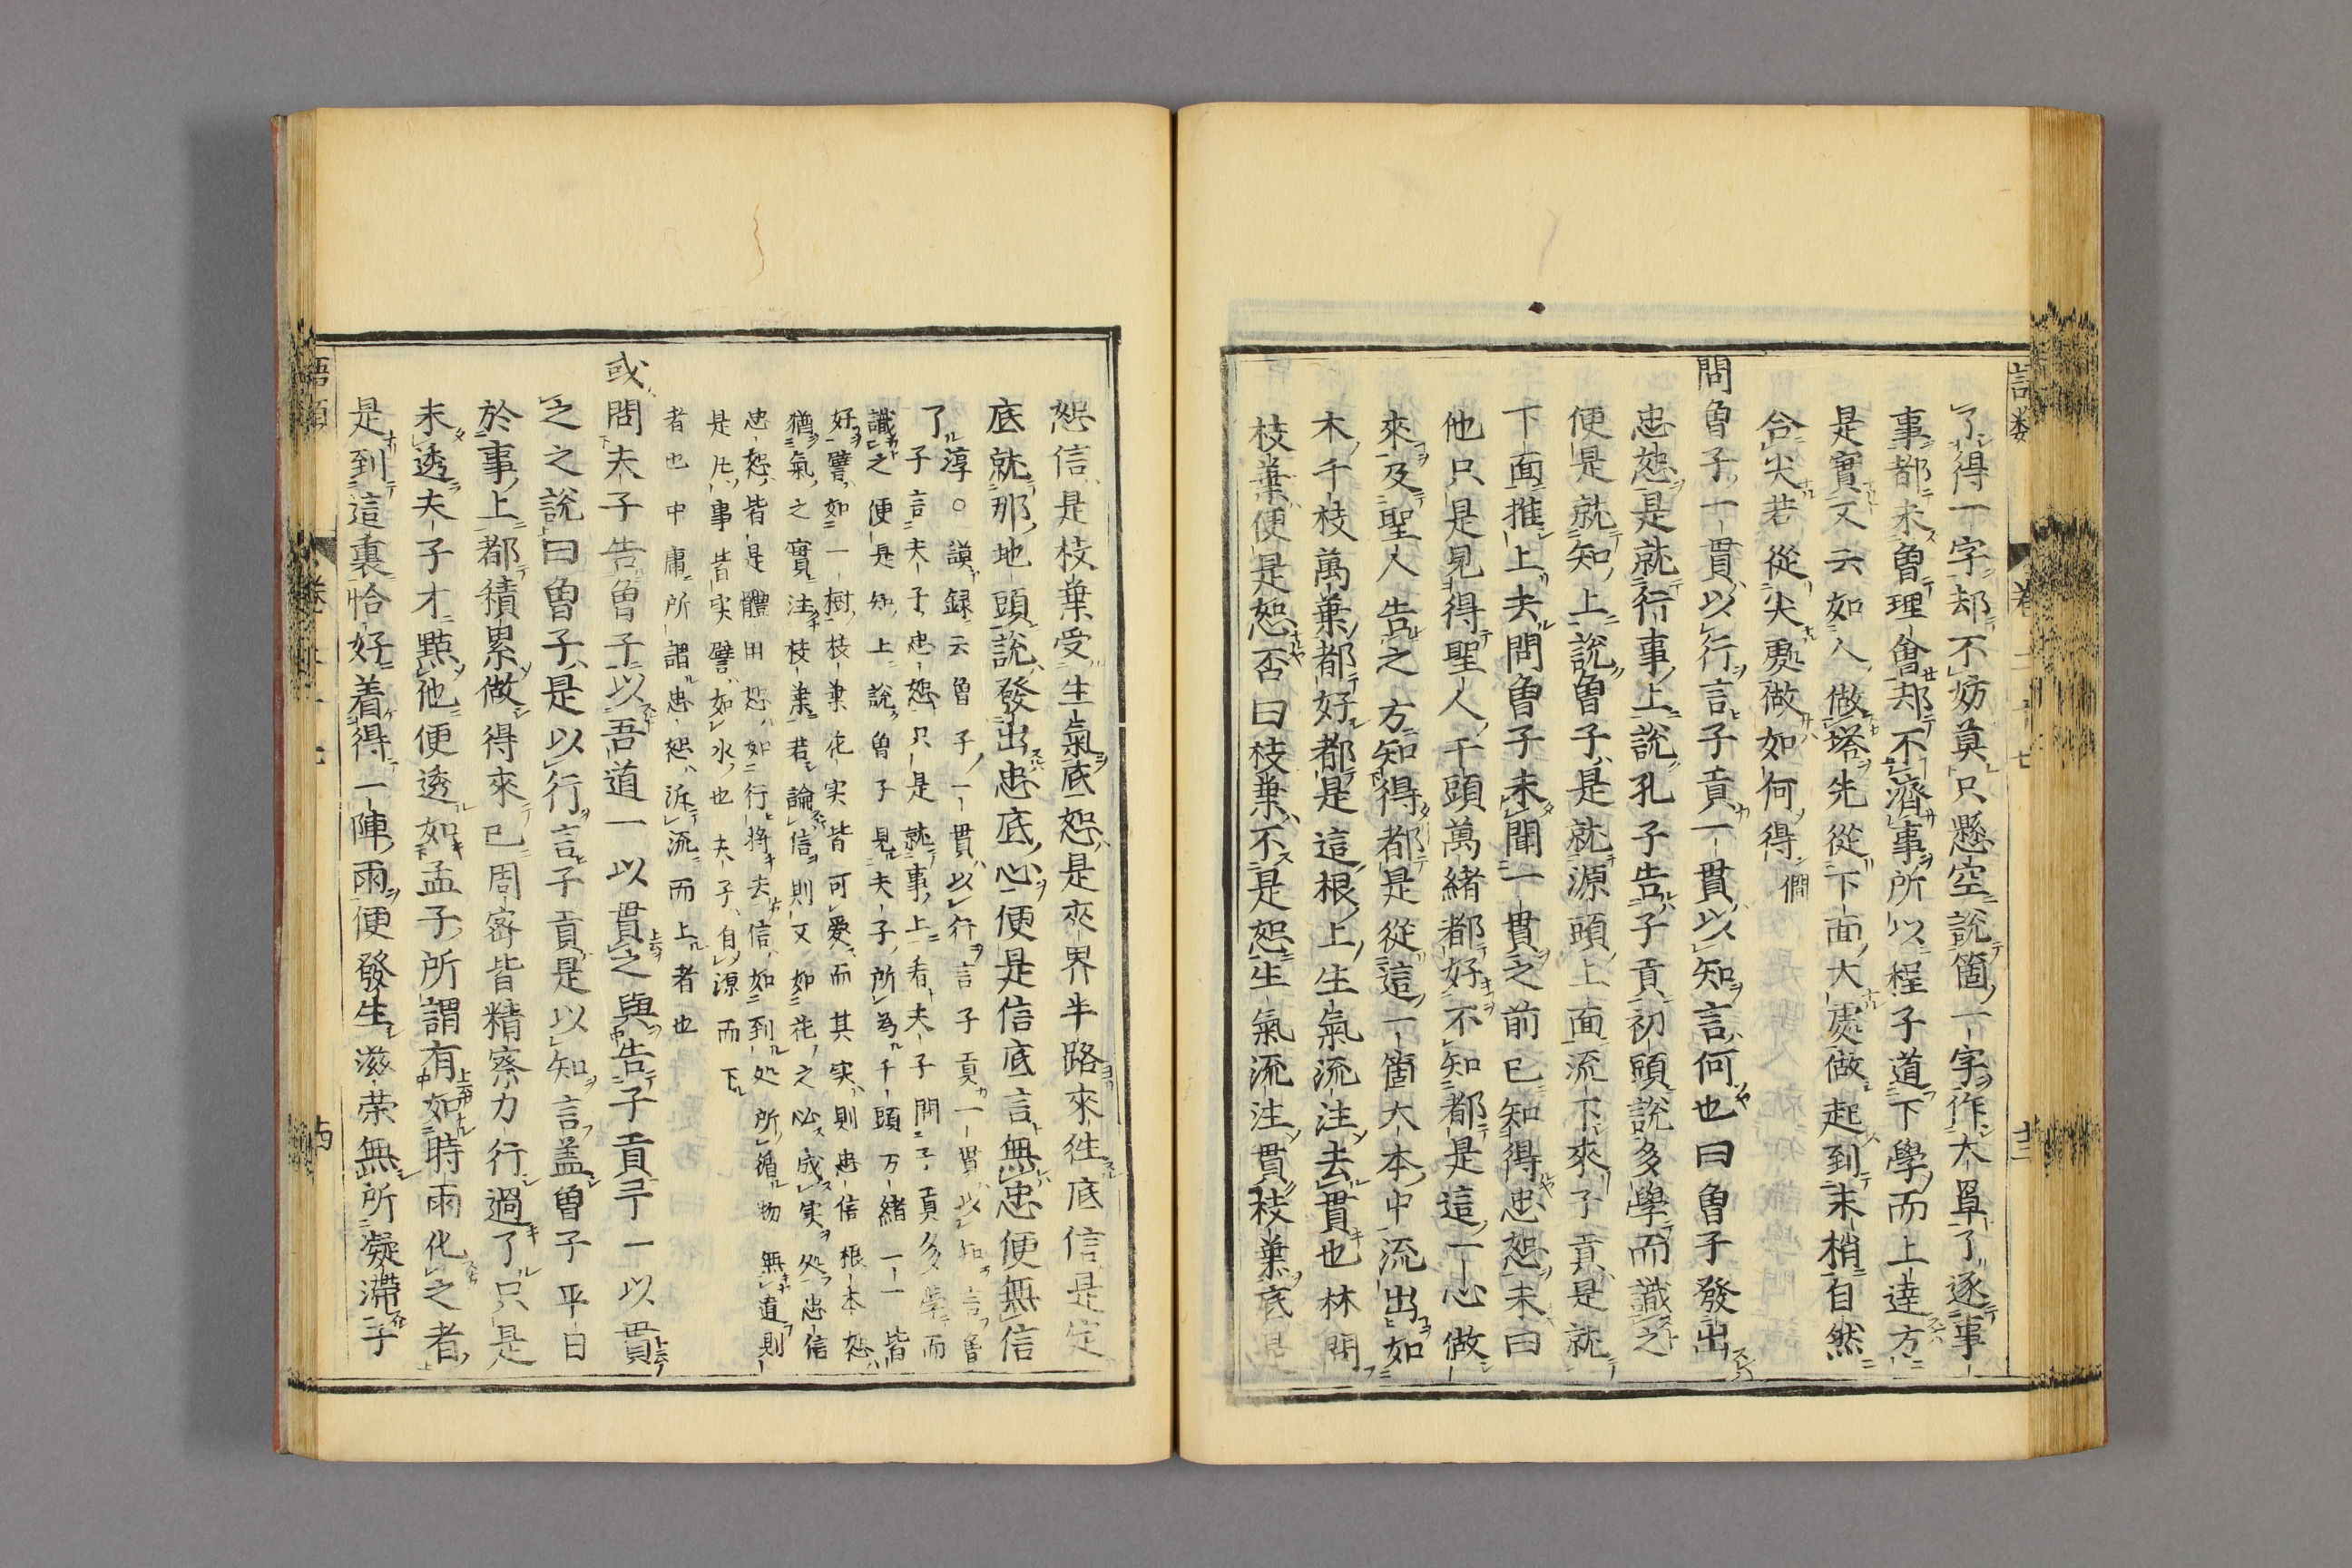 語類　卷二十七　十三
了得一字却不妨莫只懸空說箇一字作大罩了逐事
事都未曾理會却不濟事所以程子道下學而上達方
是實又云如人做塔先從下面大處做起到末梢自然
合尖若從尖處做如何得　僩
問曾子一貫以行言子貢一貫以知言何也曰曾子發出
忠恕是就行事上說孔子告子貢初頭說多學而識之
便是就知上說曾子是就源頭上面流下來子貢是就
下面推上去問曾子未聞一貫之前已知得忠恕未曰
他只是見得聖人千頭萬緒都好不知都是這一心做
來及聖人告之方知得都是從這一箇大本中流出如
木千枝萬葉都好都是這根上生氣流注去貫也林問
枝葉便是恕否曰枝葉不是恕生氣流注貫枝葉底是
恕信是枝葉受生氣底恕是夾界半路來往底信是定
底就那地頭說發出忠底心便是信底言無忠便無信
了
淳○謨録云曾子一貫以行言子貢一貫以知言曾
子言夫子忠恕只是就事上看夫子問子貢多學而
識之便是知上說曾子見夫子所為千頭万緒一一皆
好譬如一樹枝葉花实皆可愛而其实則忠信根本恕
猶氣之實注枝葉若論信則又如花之必成实処忠信
忠恕皆是體用恕如行将去信如到処所循物無違則
是凢事皆实譬如水也夫子自源而下
者也中庸所謂忠恕泝流而上者也
或問夫子告曾子以吾道一以貫之與告子貢予一以貫
之之說曰曾子是以行言子貢是以知言盖曾子平日
於事上都積累做得來已周密皆精察力行過了只是
未透夫子才點他便透如孟子所謂有如時雨化之者
是到這裏恰好着得一陣雨便發生滋荣無所凝滯子
語類　卷